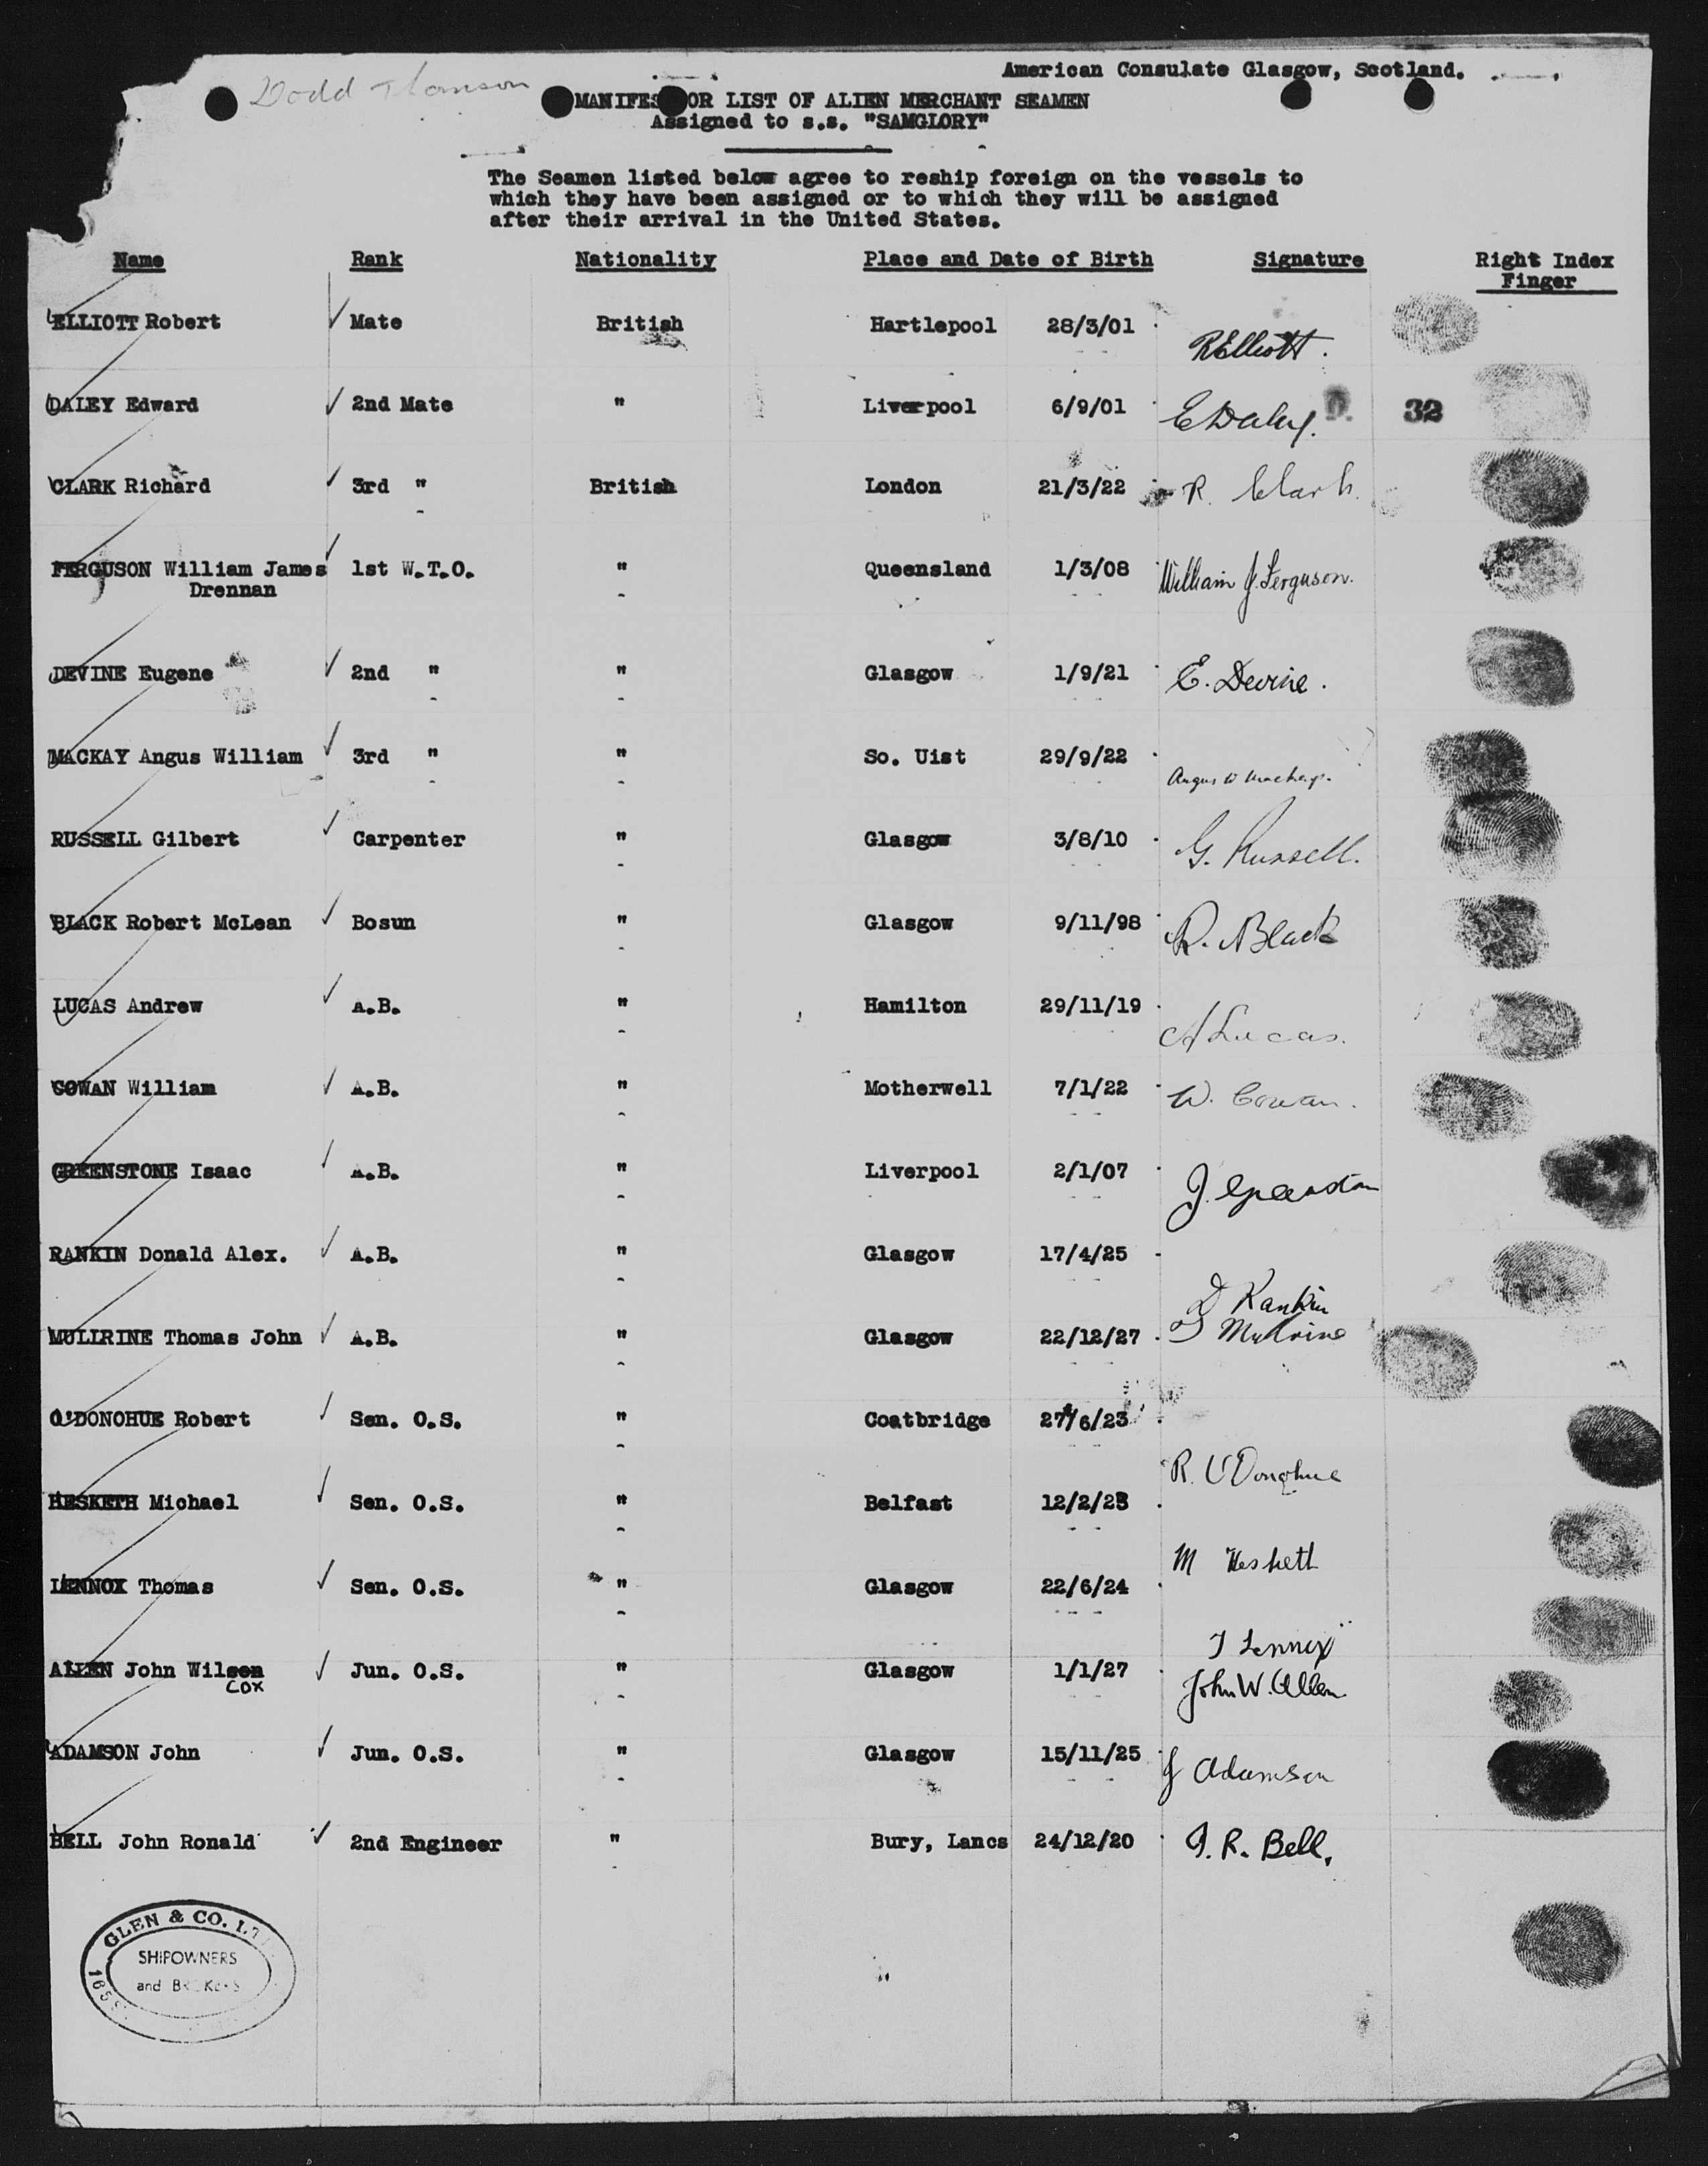 Dodd
American Consulate Glasgow, Scotland.
MANIFEST OR LIST OF ALIEN MERCHANT SEAMEN
Assigned to s.s. "SAMGLORY"
The Seamen listed below agree to reship foreign on the vessels to
which they have been assigned or to which they will be assigned
after their arrival in the United States.
Name Rank Nationality Place and Date of Birth Signature Right Index
Finger
ELLIOTT Robert Mate British Hartlepool 28/3/01 R Elliott.
DALEY Edward 2nd Mate " Liverpool 6/9/01 E Daley. 32
CLARK Richard 3rd " British London 21/3/22 R. Clark.
FERGUSON William James 1st W.T.O. " Queensland 1/3/08 William J. Ferguson.
Drennan
DEVINE Eugene 2nd " " Glasgow 1/9/21 E. Devine.
MACKAY Angus William 3rd " " So. Uist 29/9/22 Angus W Mackay.
RUSSELL Gilbert Carpenter " Glasgow 3/8/10 G. Russell.
BLACK Robert McLean Bosun " Glasgow 9/11/98 R. Black
LUCAS Andrew A.B. " Hamilton 29/11/19 A Lucas.
COWAN William A.B. " Motherwell 7/1/22 W. Cowan.
GREENSTONE Isaac A.B. " Liverpool 2/1/07
RANKIN Donald Alex. A.B. " Glasgow 17/4/25 D Rankin
MULLRINE Thomas John A.B. " Glasgow 22/12/27 T Mulrine
O'DONOHUE Robert Sen. O.S. " Coatbridge 27/6/23 R. O'Donohue
HESKETH Michael Sen. O.S. " Belfast 12/2/23 M Hesketh
LENNOX Thomas Sen. O.S. " Glasgow 22/6/24 T Lennox
ALLEN John Wilson Jun. O.S. " Glasgow 1/1/27 John W. Allen
COX
ADAMSON John Jun. O.S. " Glasgow 15/11/25 J Adamson
BELL John Ronald 2nd Engineer " Bury, Lancs 24/12/20 J. R. Bell.
GLEN & CO. LTD
SHIPOWNERS
and BROKERS